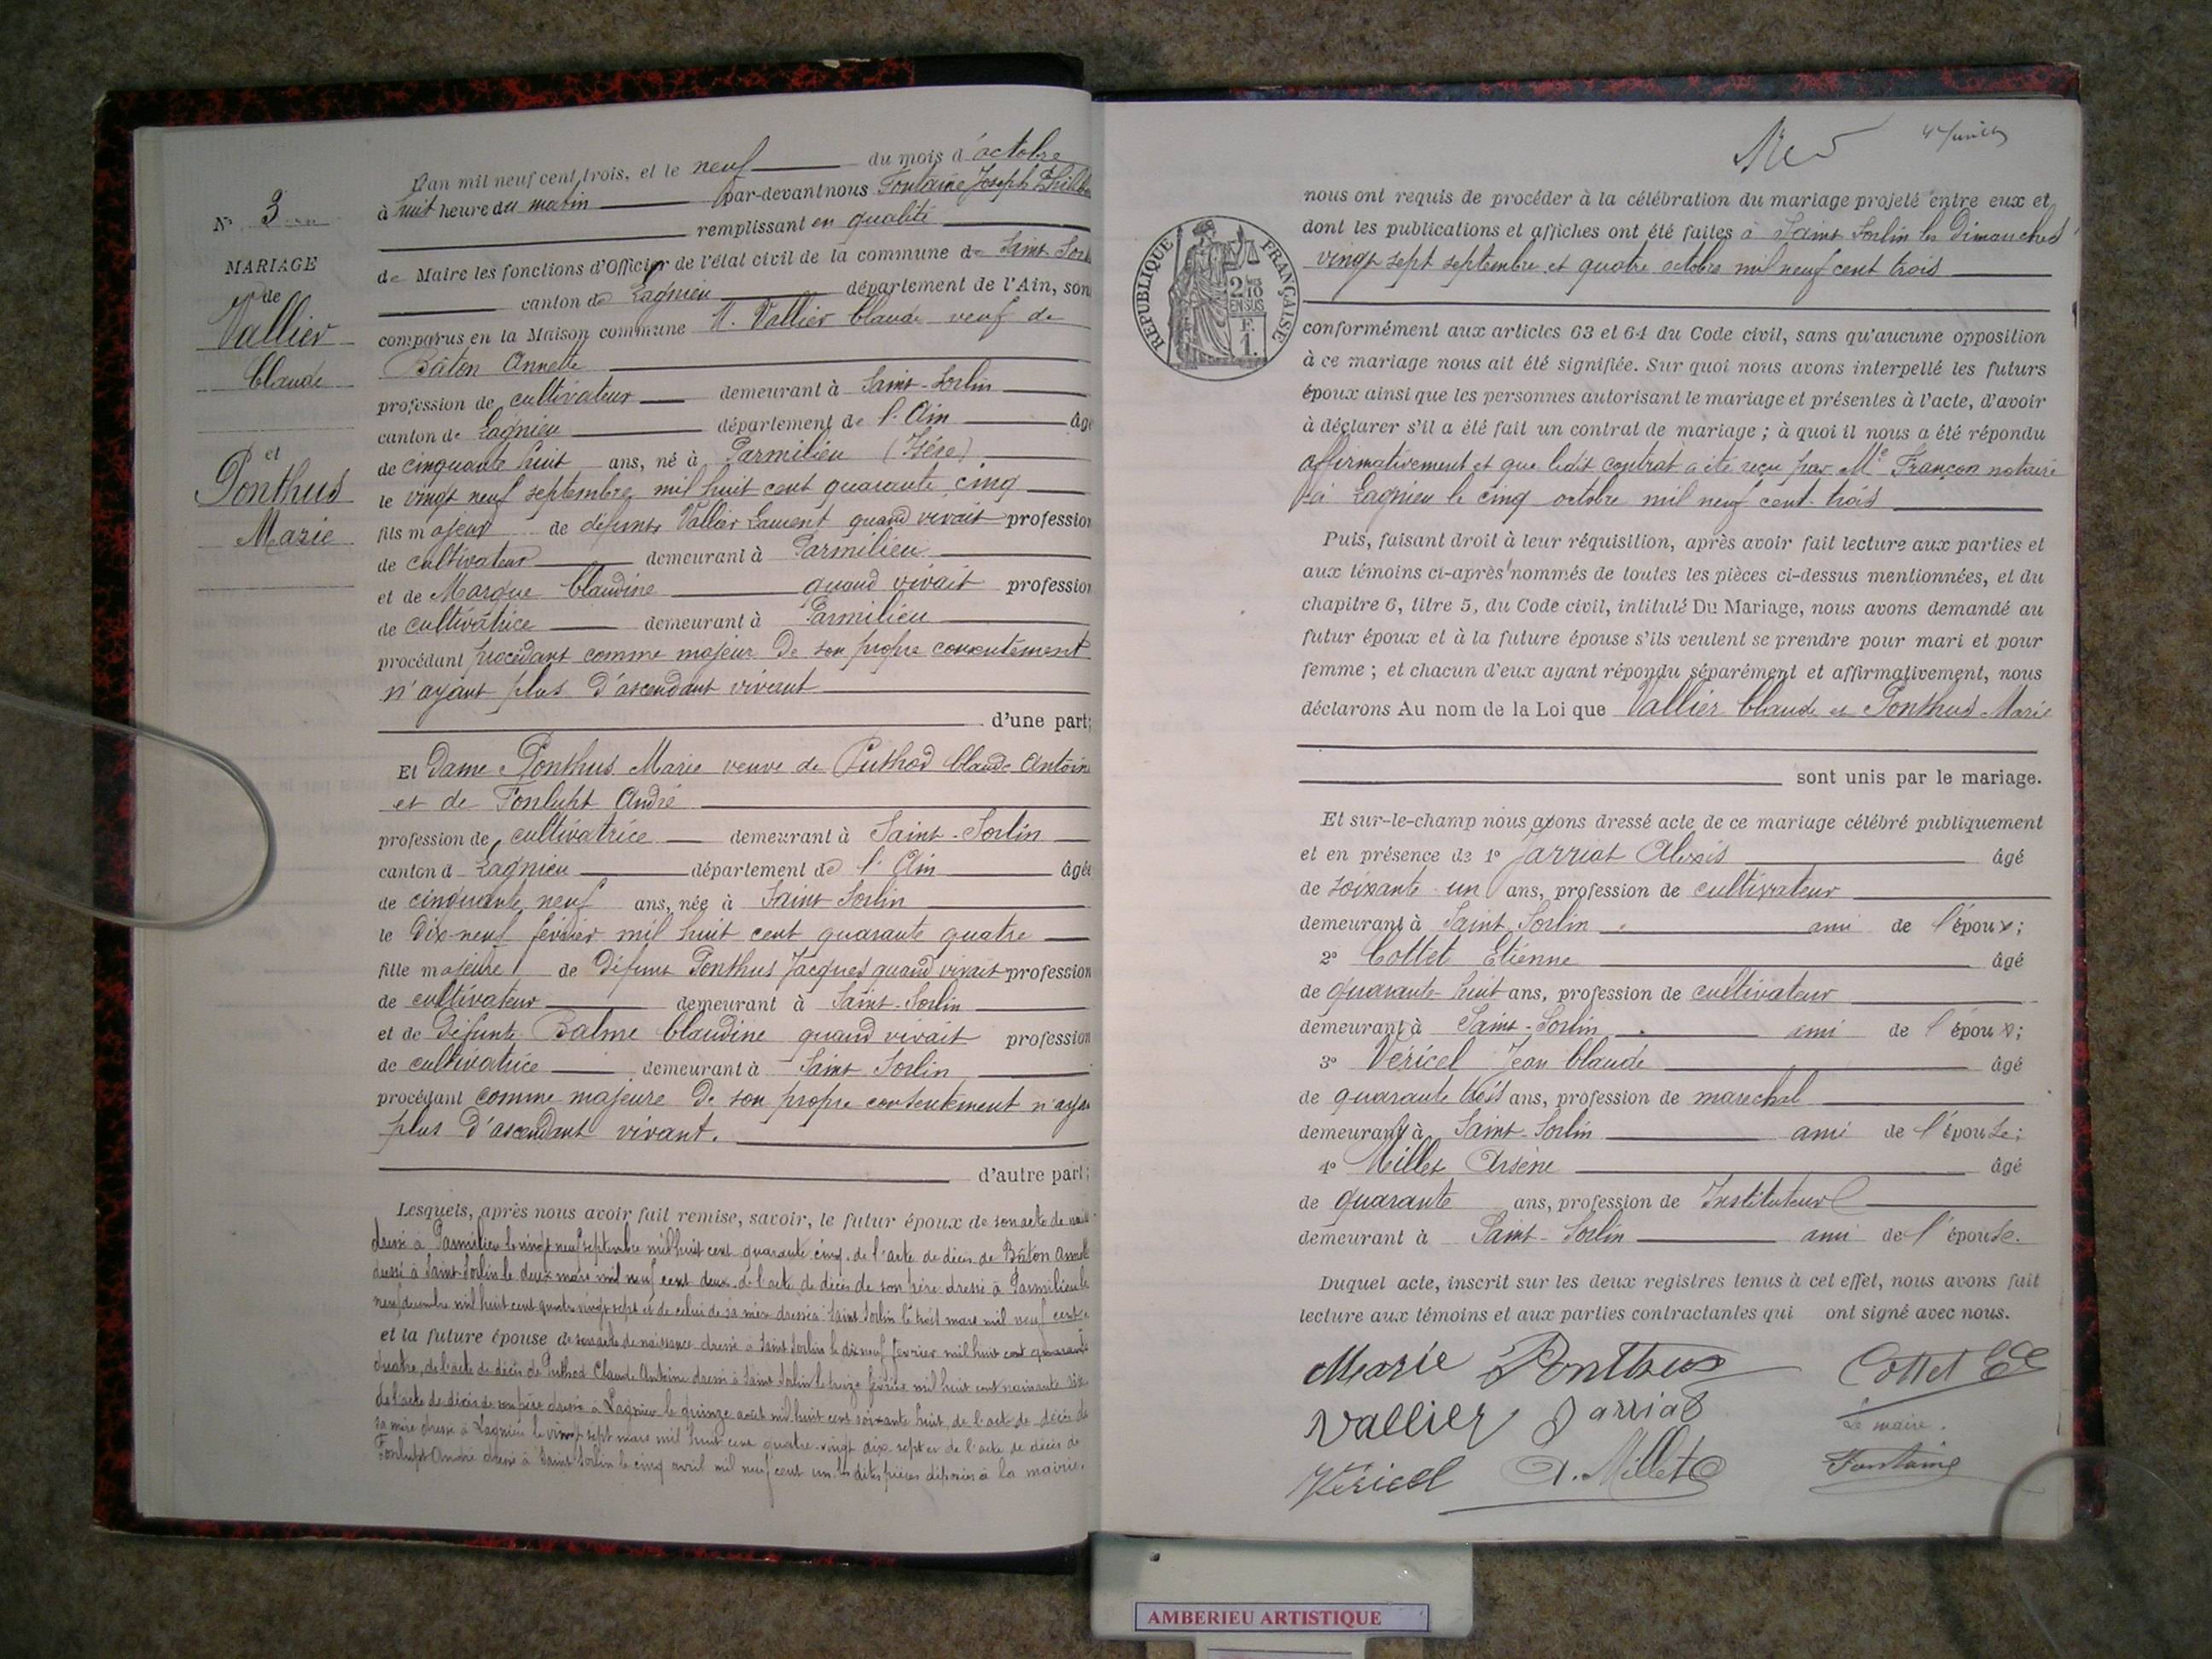 N° 3
MARIAGE
de
Vallier
Claude
et
Ponthus
Marie
L'an mil neuf cent trois, et le neuf du mois d'octobre
à huit heure du matin par-devant nous Fontaine Joseph
remplissant en qualité
de Maire les fonctions d'Officier de l'état civil de la commune de Saint Sorl
canton de Lagnieu département de l'Ain, son
comparus en la Maison commune M. Vallier Claude veuf de
Bâton Annette
profession de cultivateur demeurant à Saint-Sorlin
canton de Lagnieu département de l'Ain âgé
de cinquante huit ans, né à Parmilieu (Isère)
le vingt neuf septembre mil huit cent quarante cinq
fils majeur de défunts Vallier Laurent quand vivait profession
de cultivateur demeurant à Parmilieu
et de Marque Claudine quand vivait profession
de cultivatrice demeurant à Parmilieu
procédant procédant comme majeur de son propre consentement
n'ayant plus d'ascendant vivant
d'une part;
Et Dame Ponthus Marie veuve de Puthod Claude Antoine
et de Fonlupt André
profession de cultivatrice demeurant à Saint-Sorlin
canton d Lagnieu département de l'Ain âgée
de cinquante neuf ans, née à Saint Sorlin
le dix-neuf février mil huit cent quarante quatre
fille majeure de défunt Ponthus Jacques quand vivait profession
de cultivateur demeurant à Saint-Sorlin
et de défunte Balme Claudine quand vivait profession
de cultivatrice demeurant à Saint Sorlin
procédant comme majeure de son propre consentement n'aya
plus d'ascendant vivant.
d'autre part;
Lesquels, après nous avoir fait remise, savoir, le futur époux de son acte de nais
dressé à Parmilieu le vingt neuf septembre mil huit cent quarante cinq, de l'acte de décès de Bâton Annette
dressé à Saint-Sorlin le deux mars mil neuf cent deux, de l'acte de décès de son père dressé à Parmilieu le
neuf décembre mil huit cent quatre vingt sept et de celui de sa mère dressé à Saint Sorlin le trois mars mil neuf cent
et la future épouse de son acte de naissance dressé à Saint Sorlin le dix neuf février mil huit cent quarante
quatre, de l'acte de décès de Puthod Claude Antoine dressé à Saint Sorlin le treize février mil huit cent soixante six
de l'acte de décès de son père dressé à Lagnieu le quinze août mil huit cent soixante huit, de l'acte de décès de
sa mère dressé à Lagnieu le vingt sept mars mil huit cent quatre-vingt dix sept et de l'acte de décès de
Fonlupt André dressé à Saint Sorlin le cinq avril mil neuf cent un. les dites pièces déposées à la mairie.
REPUBLIQUE FRANÇAISE
2/10
EN SUS
F.
1.
nous ont requis de procéder à la célébration du mariage projeté entre eux et
dont les publications et affiches ont été faites à Saint Sorlin les Dimanches
vingt sept septembre et quatre octobre mil neuf cent trois
conformément aux articles 63 et 64 du Code civil, sans qu'aucune opposition
à ce mariage nous ait été signifiée. Sur quoi nous avons interpellé les futurs
époux ainsi que les personnes autorisant le mariage et présentes à l'acte, d'avoir
à déclarer s'il a été fait un contrat de mariage; à quoi il nous a été répondu
affirmativement et que ledit contrat a été reçu par Me Françon notaire
à Lagnieu le cinq octobre mil neuf cent trois
Puis, faisant droit à leur réquisition, après avoir fait lecture aux parties et
aux témoins ci-après nommés de toutes les pièces ci-dessus mentionnées, et du
chapitre 6, titre 5, du Code civil, intitulé Du Mariage, nous avons demandé au
futur époux et à la future épouse s'ils veulent se prendre pour mari et pour
femme; et chacun d'eux ayant répondu séparément et affirmativement, nous
déclarons Au nom de la Loi que Vallier Claude et Ponthus Marie
sont unis par le mariage.
Et sur-le-champ nous avons dressé acte de ce mariage célébré publiquement
et en présence de 1° Jarriat Alexis âgé
de soixante un ans, profession de cultivateur
demeurant à Saint Sorlin ami de l'époux;
2° Cottet Etienne âgé
de quarante huit ans, profession de cultivateur
demeurant à Saint-Sorlin ami de l'époux;
3° Véricel Jean Claude âgé
de quarante trois ans, profession de marechal
demeurant à Saint-Sorlin ami de l'épouse;
4° Millet Arsène âgé
de quarante ans, profession de Instituteur
demeurant à Saint-Sorlin ami de l'épouse.
Duquel acte, inscrit sur les deux registres tenus à cet effet, nous avons fait
lecture aux témoins et aux parties contractantes qui ont signé avec nous.
Marie Ponthus Cottet
Vallier Jarriat Le maire.
Véricel A. Millet Fontaine
AMBERIEU ARTISTIQUE